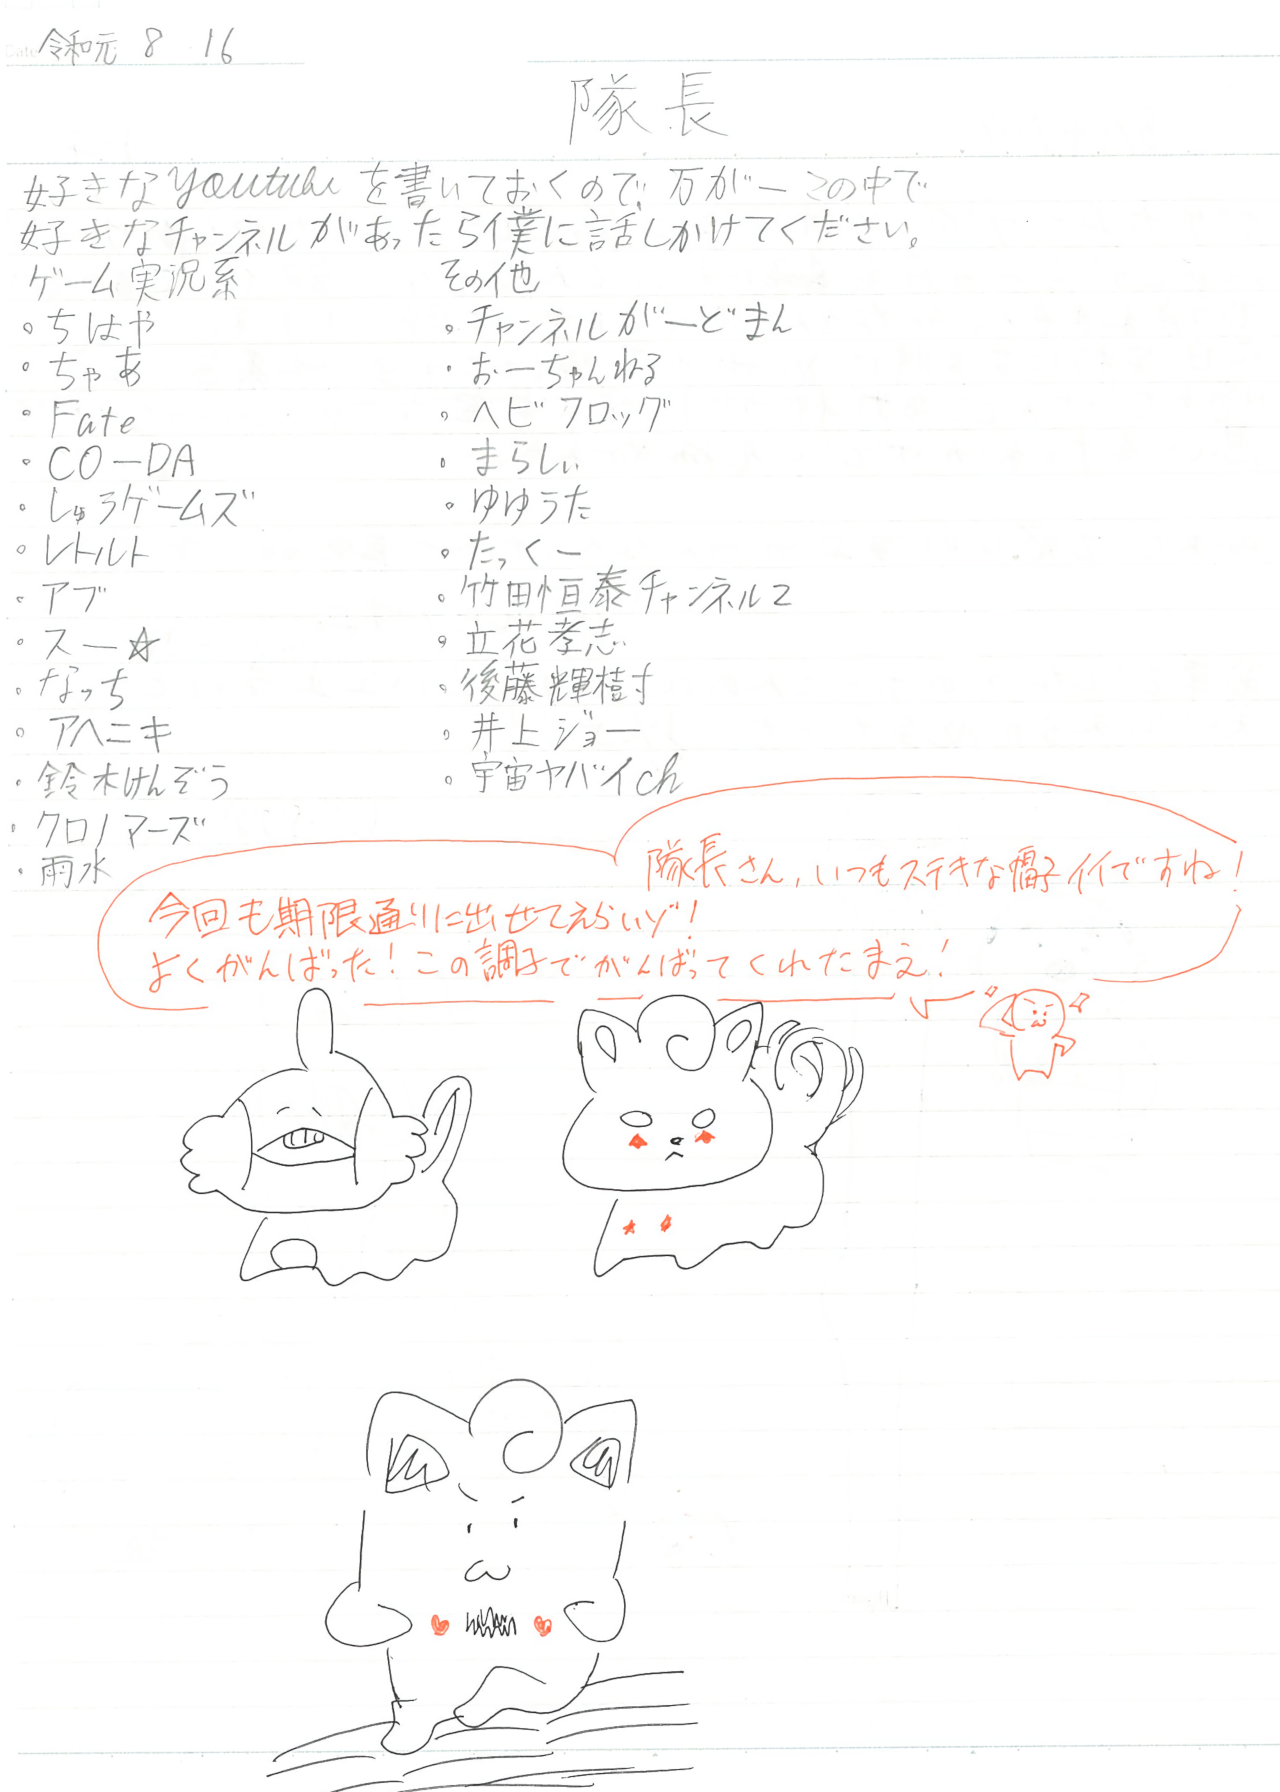 令和元 8 16
隊長
好きなYoutubeを書いておくので、万が一この中で
好きなチャンネルがあったら僕に話しかけてください。
ゲーム実況系
・ちはや
・ちゃあ
・Fate
・CO-DA
・しゅうゲームズ
・レトルト
・アブ
・スー☆
・なっち
・アヘニキ
・鈴木けんぞう
・クロノマーズ
・雨水
その他
・チャンネルがーどまん
・おーちゃんねる
・ヘビフロッグ
・まらしぃ
・ゆゆうた
・たっくー
・竹田恒泰チャンネル2
・立花孝志
・後藤輝樹
・井上ジョー
・宇宙ヤバイch
隊長さん、いつもステキな帽子イイですね!
今回も期限通りに出せてえらいゾ!
よくがんばった!この調子でがんばってくれたまえ!